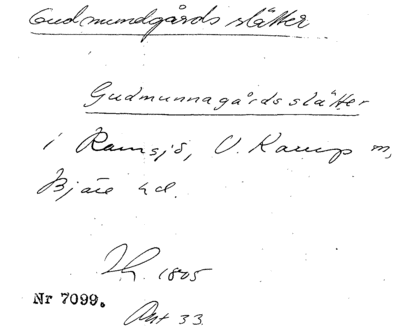 Gudmundgårds slätter
Gudmunnagårdsslätter
i Ramsjö, V. Karup sn,
Bjäre hd.
1805
Nr 7099.
Ant 33.